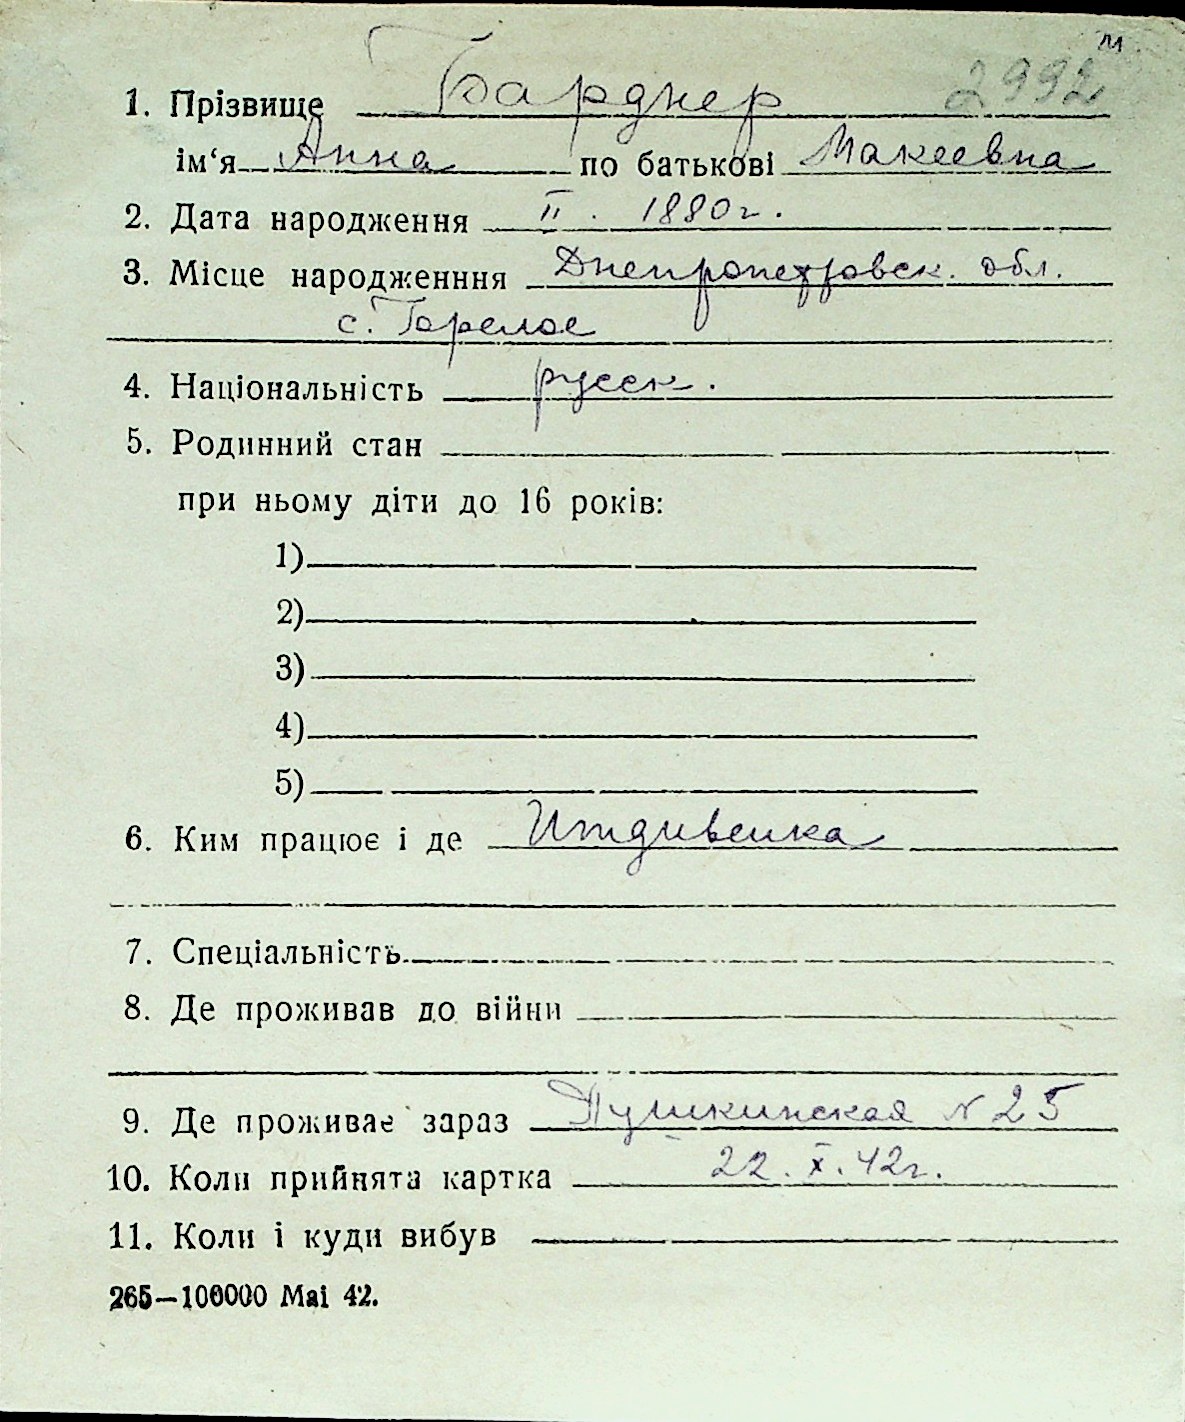 м
2992
1. Прізвище Барднер
ім‘я Анна по батькові Макеевна
2. Дата народження II. 1880г.
3. Місце народженння Днепропетровск. обл.
с. Горелое
4. Національність русск.
5. Родинний стан
при ньому діти до 16 років:
1)
2)
3)
4)
5)
6. Ким працює і де Иждивенка
7. Спеціальність
8. Де проживав до війни
9. Де проживає зараз Пушкинская N 25
10. Коли прийнята картка 22. X. 42г.
11. Коли і куди вибув
265—100000 Mai 42.